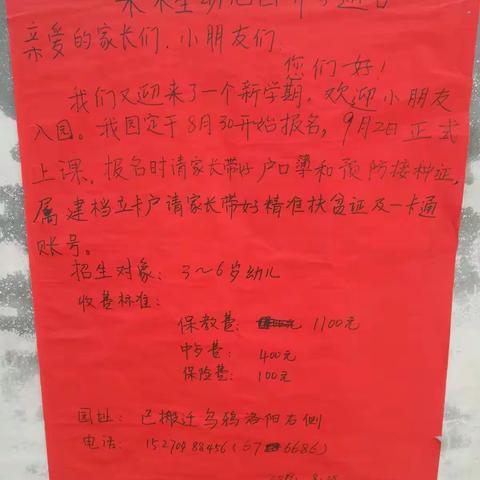 未来星幼儿园开学通告
亲爱的家长们、小朋友们:
您们好!
我们又迎来了一个新学期,欢迎小朋友
入园。我园定于8月30开始报名,9月2日正式
上课,报名时请家长带好户口簿和预防接种证,
属建档立卡户请家长带好精准扶贫证及一卡通
账号。
招生对象:3~6岁幼儿
收费标准:
保教费: 1100元
中歺费: 400元
保险费: 100元
园址: 已搬迁乌鸦洛阳右侧
电话: 15270988456(67 6686)